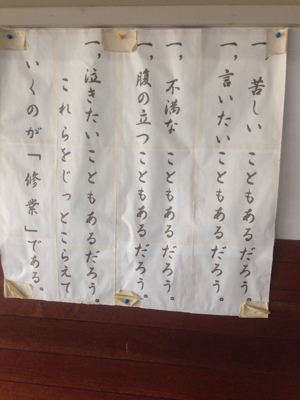 一、苦しい こともあるだろう。
一、言いたいこともあるだろう。
一、不満な こともあるだろう。
一、腹の立つ こともあるだろう。
一、泣きたいこともあるだろう。
これらをじっとこらえて
いくのが「修業」である。